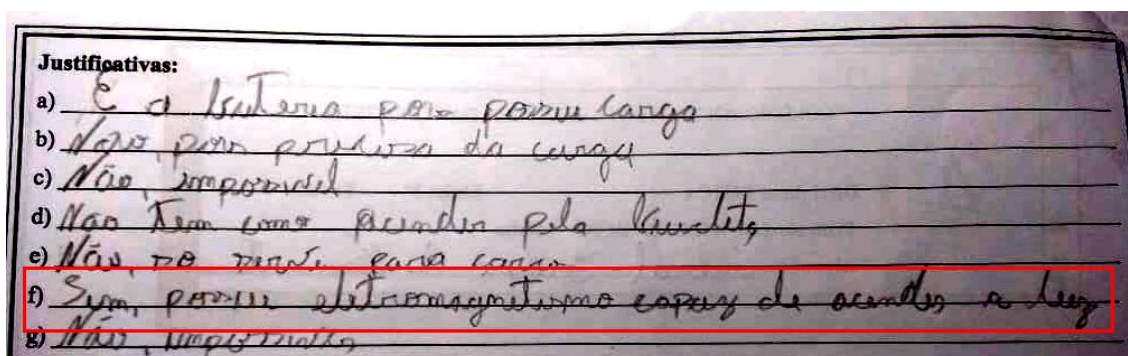 Justificativas:
a) É a bateria pois possui carga
b) Não, pois precisa da carga
c) Não, impossivel
d) Nao tem como acender pela
e) Não, so para carro
f) Sim, possui eletromagnetismo capaz de acender a luz
g) Não,